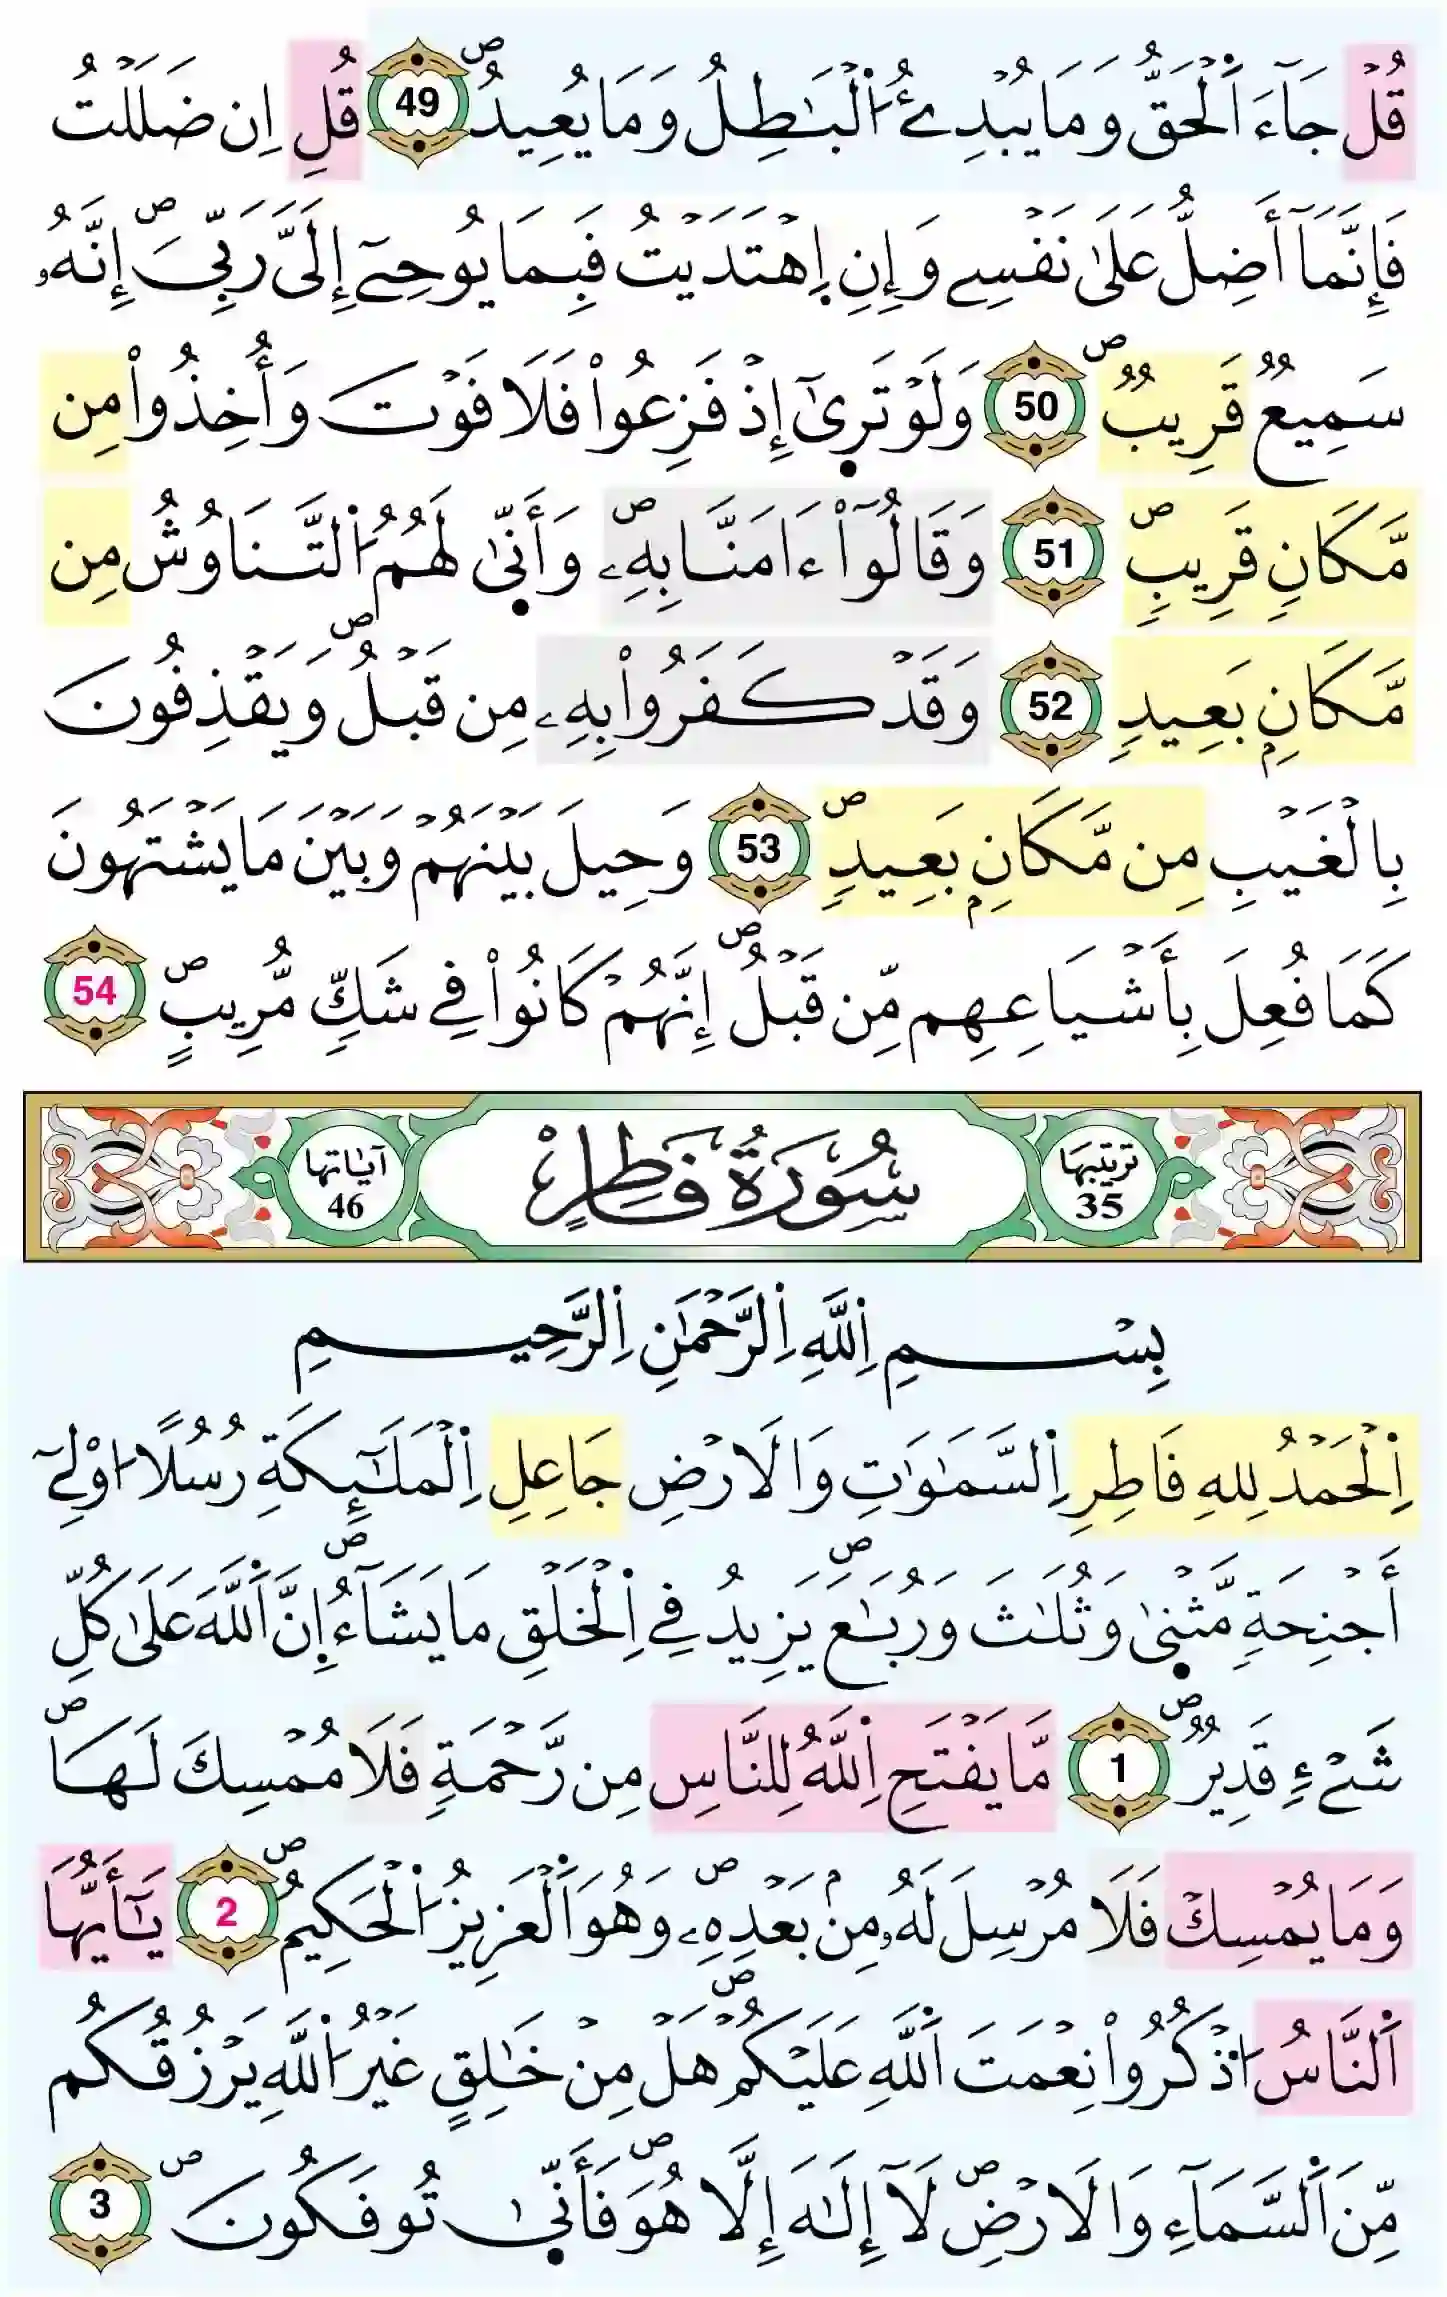 قُلْ جَآءَ اَ۬لْحَقُّ وَمَا يُبْدِئُ اُ۬لْبَٰطِلُ وَمَا يُعِيدُۖ 49 قُلِ اِن ضَلَلْتُ
فَإِنَّمَآ أَضِلُّ عَلَىٰ نَفْسِے وَإِنِ اِ۪هْتَدَيْتُ فَبِمَا يُوحِےٓ إِلَىَّ رَبِّيَۖ إِنَّهُۥ
سَمِيعٌ قَرِيبٌۖ 50 وَلَوْ تَرٜىٰٓ إِذْ فَزِعُواْ فَلَا فَوْتَ وَأُخِذُواْ مِن
مَّكَانٖ قَرِيبٖۖ 51 وَقَالُوٓاْ ءَامَنَّا بِهِۦۖ وَأَنّٜىٰ لَهُمُ اُ۬لتَّنَاوُشُ مِن
مَّكَانِۢ بَعِيدٖ 52 وَقَدْ كَفَرُواْ بِهِۦ مِن قَبْلُۖ وَيَقْذِفُونَ
بِالْغَيْبِ مِن مَّكَانِۢ بَعِيدٖۖ 53 وَحِيلَ بَيْنَهُمْ وَبَيْنَ مَا يَشْتَهُونَ
كَمَا فُعِلَ بِأَشْيَاعِهِم مِّن قَبْلُۖ إِنَّهُمْ كَانُواْ فِے شَكّٖ مُّرِيبٖۖ 54
تَرْتِيبُهَا 35 سُورَةُ فَاطِرٍ آيَاتُهَا 46
بِسْمِ اِ۬للَّهِ اِ۬لرَّحْمَٰنِ اِ۬لرَّحِيمِ
اِ۬لْحَمْدُ لِلهِ فَاطِرِ اِ۬لسَّمَٰوَٰتِ وَالَارْضِ جَاعِلِ اِ۬لْمَلَٰٓئِكَةِ رُسُلًا ا۟وْلِےٓ
أَجْنِحَةٖ مَّثْنٜىٰ وَثُلَٰثَ وَرُبَٰعَۖ يَزِيدُ فِے اِ۬لْخَلْقِ مَا يَشَآءُۖ إِنَّ اَ۬للَّهَ عَلَىٰ كُلِّ
شَےْءٖ قَدِيرٌۖ 1 مَّا يَفْتَحِ اِ۬للَّهُ لِلنَّاسِ مِن رَّحْمَةٖ فَلَا مُمْسِكَ لَهَاۖ
وَمَا يُمْسِكْ فَلَا مُرْسِلَ لَهُۥ مِنۢ بَعْدِهِۦۖ وَهُوَ اَ۬لْعَزِيزُ اُ۬لْحَكِيمُۖ 2 يَٰٓأَيُّهَا
اَ۬لنَّاسُ اُ۟ذْكُرُواْ نِعْمَتَ اَ۬للَّهِ عَلَيْكُمْۖ هَلْ مِنْ خَٰلِقٍ غَيْرُ اُ۬للَّهِ يَرْزُقُكُم
مِّنَ اَ۬لسَّمَآءِ وَالَارْضِۖ لَآ إِلَٰهَ إِلَّا هُوَۖ فَأَنّٜىٰ تُوفَكُونَۖ 3